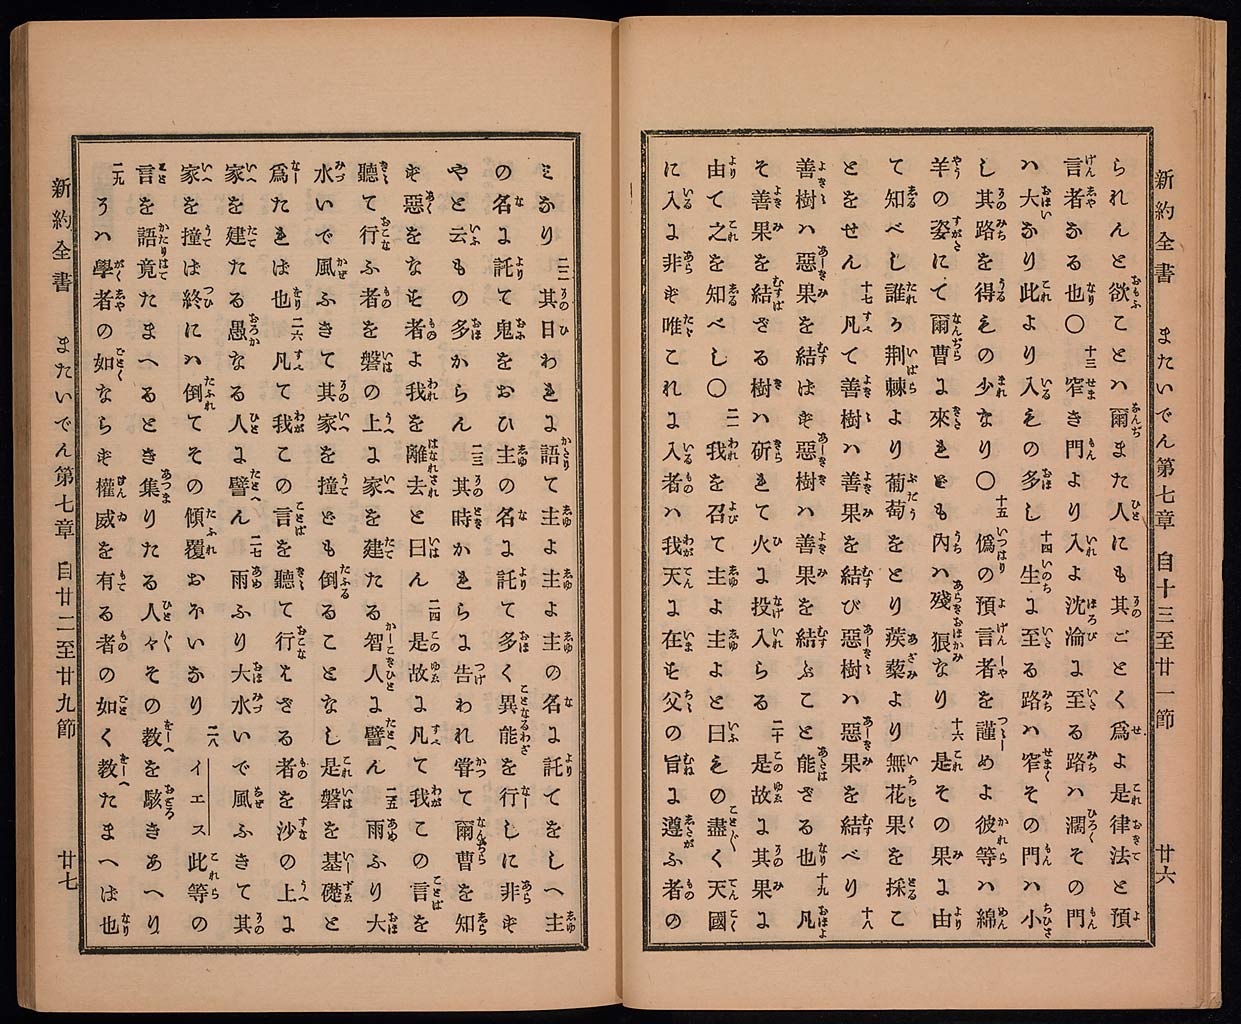 新約全書　またいでん第七章　自十三至廿一節　廿六
られんと欲ことハ爾また人にも其ごとく爲よ是律法と預
言者なる也〇十三窄き門より入よ沈淪に至る路ハ濶その門
ハ大なり此より入もの多し十四生に至る路ハ窄その門ハ小
し其路を得もの少なり〇十五僞の預言者を謹めよ彼等ハ綿
羊の姿にて爾曹に來れども內ハ殘狼なり十六是その果に由
て知べし誰か荆棘より葡萄をとり蒺藜より無花果を採こ
とをせん十七凡て善樹ハ善果を結び惡樹ハ惡果を結べり十八
善樹ハ惡果を結ばず惡樹ハ善果を結ぶこと能ざる也十九凡
そ善果を結ざる樹ハ斫れて火に投入らる二十是故に其果に
由て之を知べし〇二一我を召て主よ主よと曰もの盡く天國
に入に非ず唯これに入者ハ我天に在す父の旨に遵ふ者の
新約全書　またいでん第七章　自廿二至廿九節　廿七
みなり二二其日われに語て主よ主よ主の名に託てをしへ主
の名に託て鬼をおひ主の名に託て多く異能を行しに非ず
やと云もの多からん二三其時かれらに告われ甞て爾曹を知
ず惡をなす者よ我を離去と曰ん二四是故に凡て我この言を
聽て行ふ者を磐の上に家を建たる智人に譬ん二五雨ふり大
水いで風ふきて其家を撞ども倒ることなし是磐を基礎と
爲たれば也二六凡て我この言を聽て行はざる者を沙の上に
家を建たる愚なる人に譬ん二七雨ふり大水いで風ふきて其
家を撞ば終にハ倒てその傾覆おほいなり二八イエス此等の
言を語竟たまへるとき集りたる人々その教を駭きあへり
二九そハ學者の如ならず權威を有る者の如く教たまへば也